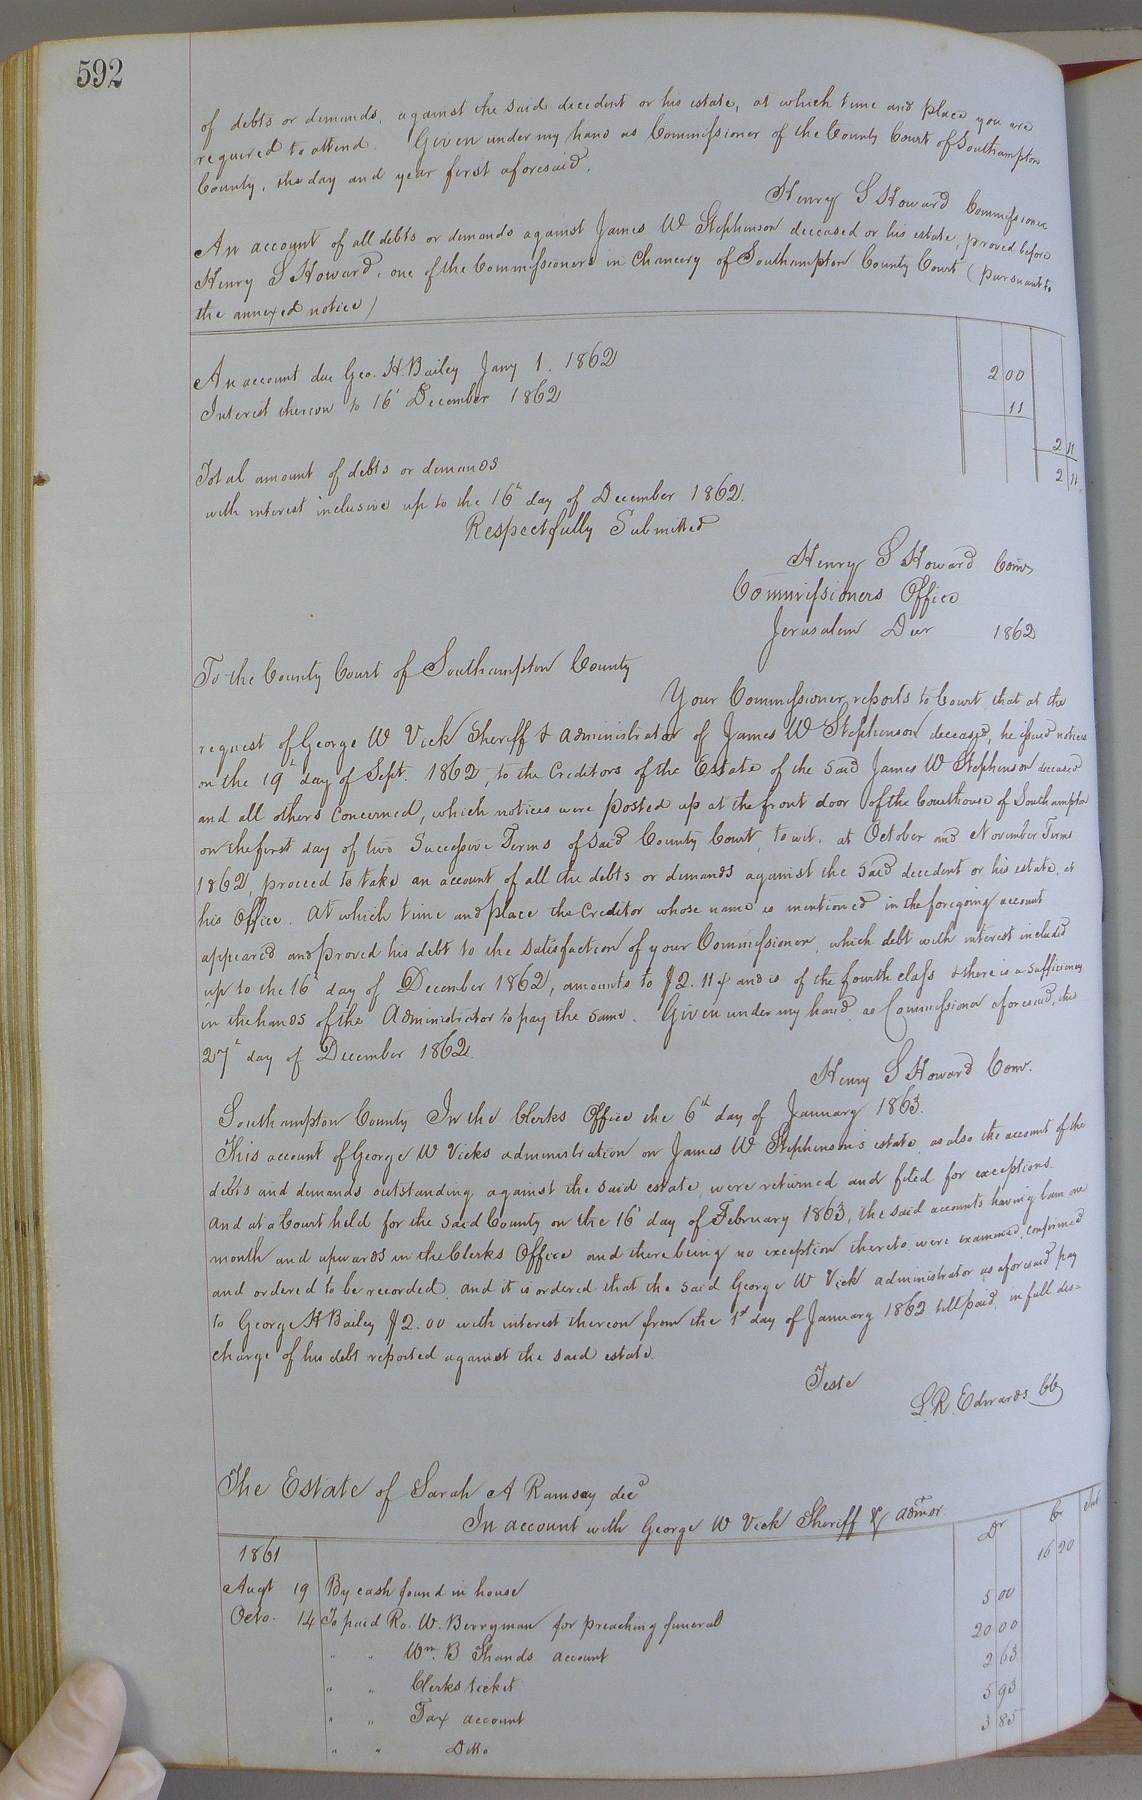 592
of debts or demands, against the said decedent or his estate, at which time and place you are
required to attend. Given under my hand as Commissioner of the County Court of Southampton
County, the day and year first aforesaid.
Henry S Howard Commissioner
An account of all debts or demands against James W Stephenson deceased or his estate, proved before
Henry S Howard, one of the Commissioners in Chancery of Southampton County Court (pursuant to
the annexed notice)
An account due Geo. H. Bailey Jany 1. 1862 2 00
Interest thereon to 16' December 1862 11
2 11
Total amount of debts or demands 2 11
with interest inclusive up to the 16th day of December 1862.
Respectfully Submitted
Henry S Howard Com
Commissioners Office
Jerusalem Decr 1862
To the County Court of Southampton County
Your Commissioner reports to Court, that at the
request of George W Vick Sheriff & Administrator of James W Stephenson deceased, he issued notices
on the 19th day of Sept. 1862, to the Creditors of the Estate of the said James W Stephenson deceased
and all others concerned, which notices were posted up at the front door of the Courthouse of Southampton
on the first day of two Successive Terms of said County Court, to wit: at October and November Terms
1862, proceed to take an account of all the debts or demands against the said decedent or his estate, at
his Office. At which time and place the Creditor whose name is mentioned in the foregoing account
appeared and proved his debt to the satisfaction of your Commissioner, which debt with interest included
up to the 16' day of December 1862, amounts to $2.11 and is of the fourth class & there is a sufficiency
in the hands of the Administrator to pay the same. Given under my hand as Commissioner aforesaid, this
27th day of December 1862.
Henry S Howard Com.
Southampton County In the Clerks Office the 6th day of January 1863.
This account of George W Vicks administration on James W Stephenson's estate, as also the account of the
debts and demands outstanding against the said estate, were returned and filed for exceptions.
And at a Court held for the said County on the 16' day of February 1863, the said accounts having lain one
month and upwards in the Clerks Office and there being no exception thereto were examined, confirmed
and ordered to be recorded, and it is ordered that the said George W Vick administrator as aforesaid pay
to George H Bailey $2.00 with interest thereon from the 1st day of January 1862 till paid, in full dis=
charge of his debt reported against the said estate.
Teste
L. R. Edwards CC
The Estate of Sarah A Ramsay decd
In account with George W Vick Sheriff & admor.
Dr Cr
1861
Augt 19 By cash found in house 16 20
Octo. 14 To paid Ro. W. Berryman for preaching funeral 5 00
" " Wm B Shands account 20 00
" " Clerks ticket 2 63
" " Tax account 5 93
" " Ditto 3 85